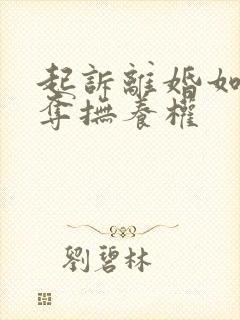 起訴離婚如
奪撫養權
劉碧林